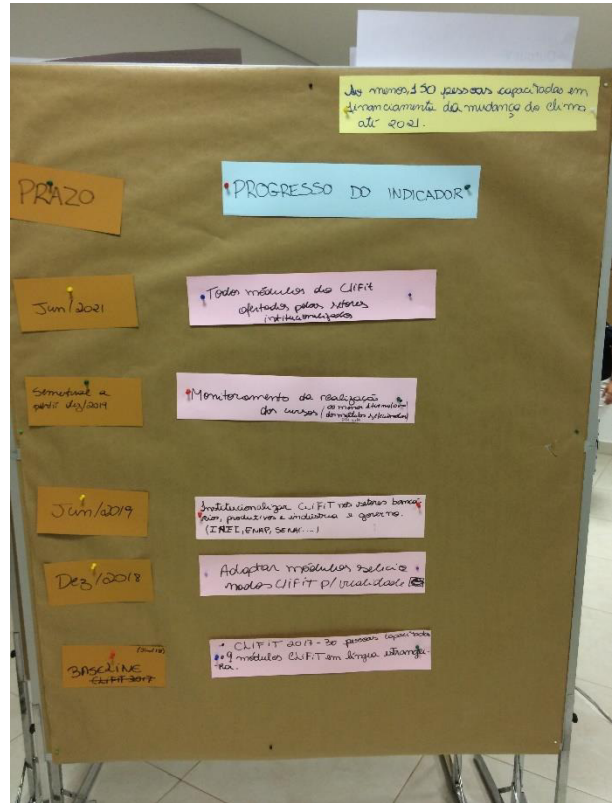 Ao menos 150 pessoas capacitadas em
financiamento da mudança do clima
até 2021.
PRAZO
PROGRESSO DO INDICADOR
Jun/2021
Todos módulos do CliFit
ofertados pelos setores
institucionalizados
Semestral a
partir dez/2019
Monitoramento da realização
dos cursos (ao menos
Jun/2019
Institucionalizar CLIFIT nos setores bancá
rios, produtivos e indústria e governo.
(INEI, ENAP, SENAI....)
Dez/2018
Adaptar módulos selecio
nados CLIFIT p/ realidade
BASELINE
CLIFIT 2017
• CLIFIT 2017 - 30 pessoas capacitadas
• 9 módulos CLIFIT em língua estrangei-
ra.